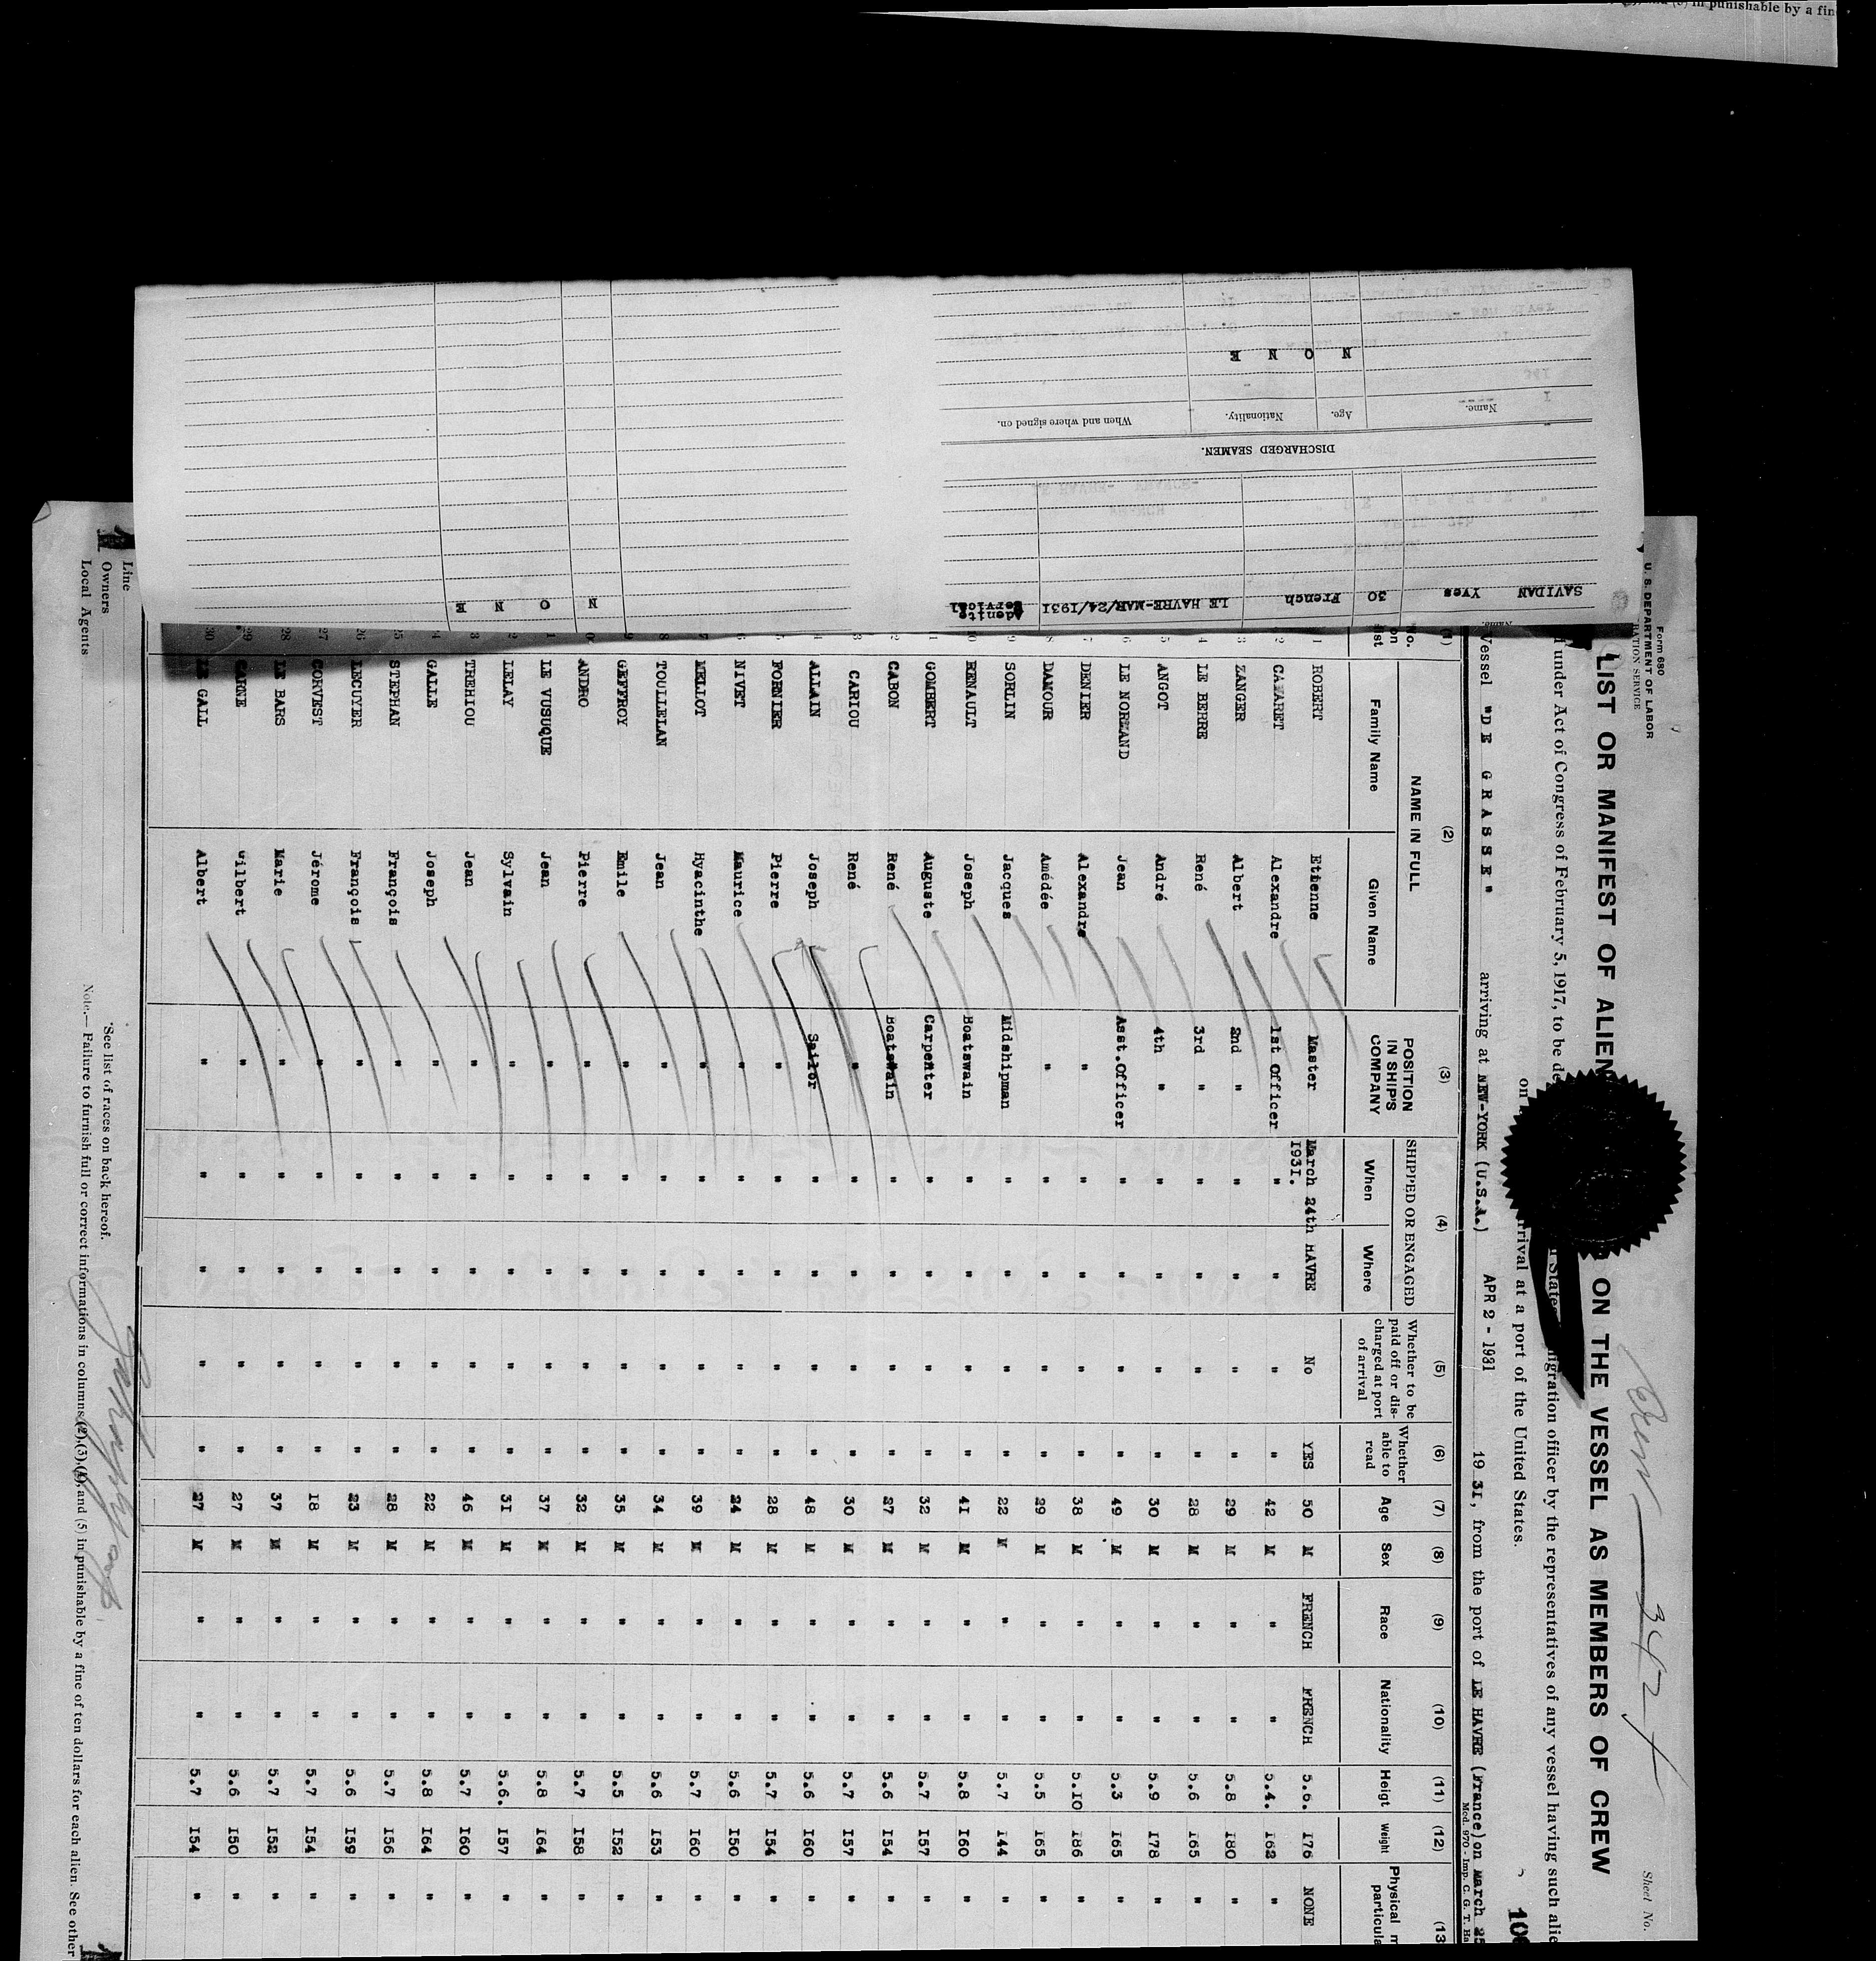 and (5) in punishable by a fin
Form 680
U. S. DEPARTMENT OF LABOR
RATION SERVICE
Sheet No.
3424
LIST OR MANIFEST OF ALIEN ON THE VESSEL AS MEMBERS OF CREW
under Act of Congress of February 5, 1917, to be de igration officer by the representatives of any vessel having such alie
on rrival at a port of the United States.
Vessel "DE GRASSE" arriving at NEW-YORK (U.S.A.) APR 2 - 1931 19 31, from the port of LE HAVRE (France) on March 25
Mod. 970 - Imp. C. G. T. Ha
(1) (2) (3) (4) (5) (6) (7) (8) (9) (10) (11) (12) (13
No. on list NAME IN FULL Family Name Given Name POSITION IN SHIP'S COMPANY SHIPPED OR ENGAGED When Where Whether to be paid off or discharged at port of arrival Whether able to read Age Sex Race Nationality Heigt Weight Physical m particula
1 ROBERT Etienne Master March 24th 1931. HAVRE No YES 50 M FRENCH FRENCH 5.6. 176 NONE
2 CAZARET Alexandre 1st Officer " " " " 42 M " " 5.4. 162 "
3 ZANGER Albert 2nd " " " " " 29 M " " 5.8 180 "
4 LE BEHRE René 3rd " " " " " 28 M " " 5.6 165 "
5 ANGOT André 4th " " " " " 30 M " " 5.9 178 "
6 LE NORMAND Jean Asst.Officer " " " " 49 M " " 5.3 165 "
7 DENIER Alexandre " " " " " 38 M " " 5.10 186 "
8 DAMOUR Amédée " " " " " 29 M " " 5.5 165 "
9 SORLIN Jacques Midshipman " " " " 22 M " " 5.7 144 "
10 RENAULT Joseph Boatswain " " " " 41 M " " 5.8 160 "
11 GOMBERT Auguste Carpenter " " " " 32 M " " 5.7 157 "
12 CABON René Boatswain " " " " 27 M " " 5.6 154 "
3 CARIOU René " " " " " 30 M " " 5.7 157 "
4 ALLAIN Joseph Sailor " " " " 48 M " " 5.6 160 "
5 FORNIER Pierre " " " " " 28 M " " 5.7 154 "
6 NIVET Maurice " " " " " 24 M " " 5.6 150 "
7 MELLOT Hyacinthe " " " " " 39 M " " 5.7 160 "
8 TOULLELAN Jean " " " " " 34 M " " 5.6 153 "
9 GEFFROY Emile " " " " " 35 M " " 5.5 152 "
0 ANDRO Pierre " " " " " 32 M " " 5.7 158 "
1 LE VUSUQUE Jean " " " " " 37 M " " 5.8 164 "
2 LELAY Sylvain " " " " " 31 M " " 5.6. 157 "
3 TREHIOU Jean " " " " " 46 M " " 5.7 160 "
4 GALLE Joseph " " " " " 22 M " " 5.8 164 "
25 STEPHAN François " " " " " 28 M " " 5.7 156 "
26 LECUYER François " " " " " 23 M " " 5.6 159 "
27 CORVEST Jérome " " " " " 18 M " " 5.7 154 "
28 LE BARS Marie " " " " " 37 M " " 5.7 152 "
29 CARNE Gilbert " " " " " 27 M " " 5.6 150 "
30 LE GALL Albert " " " " " 27 M " " 5.7 154 "
Line
Owners
Local Agents
*See list of races on back hereof.
Note.— Failure to furnish full or correct informations in columns (2),(3),(4), and (5) in punishable by a fine of ten dollars for each alien. See other
SAVIDAN Yves 30 French LE HAVRE-MAR/24/1931 Adenite Cervical
N O N E
DISCHARGED SEAMEN.
Name. Age. Nationality. When and where signed on.
N O N E